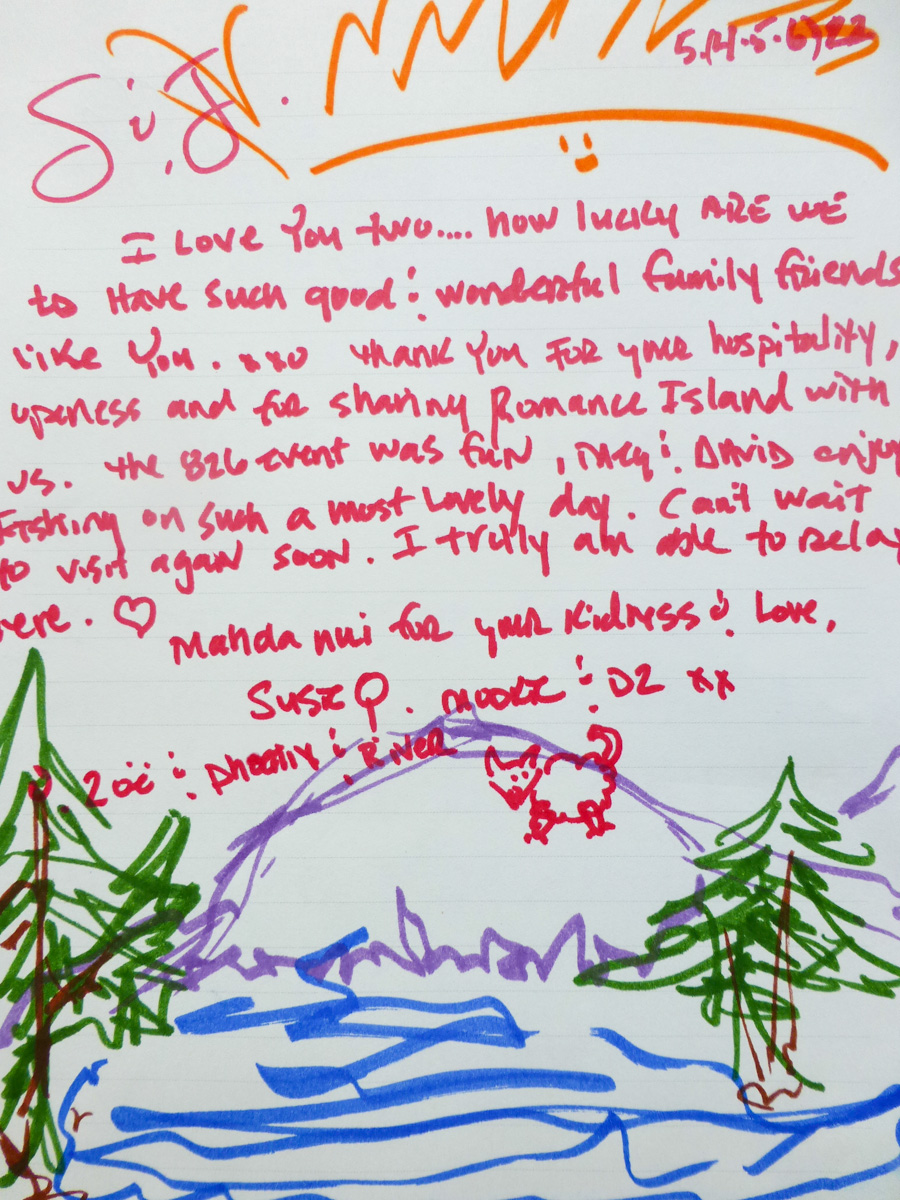 Si, J.
I Love You two.... how lucky ARE WE
to Have such good & wonderful family friends
like You. xxo thank You For your hospitality,
openess and for sharing Romance Island with
us. the 826 event was fun, & David enjoy
Fishing on such a most Lovely day. Can't wait
to visit again soon. I trully am able to relax
here. ♡
Mahda nui for your Kidness &. Love,
SusieQ. & DZ xx
Zoë & Phoenix & River